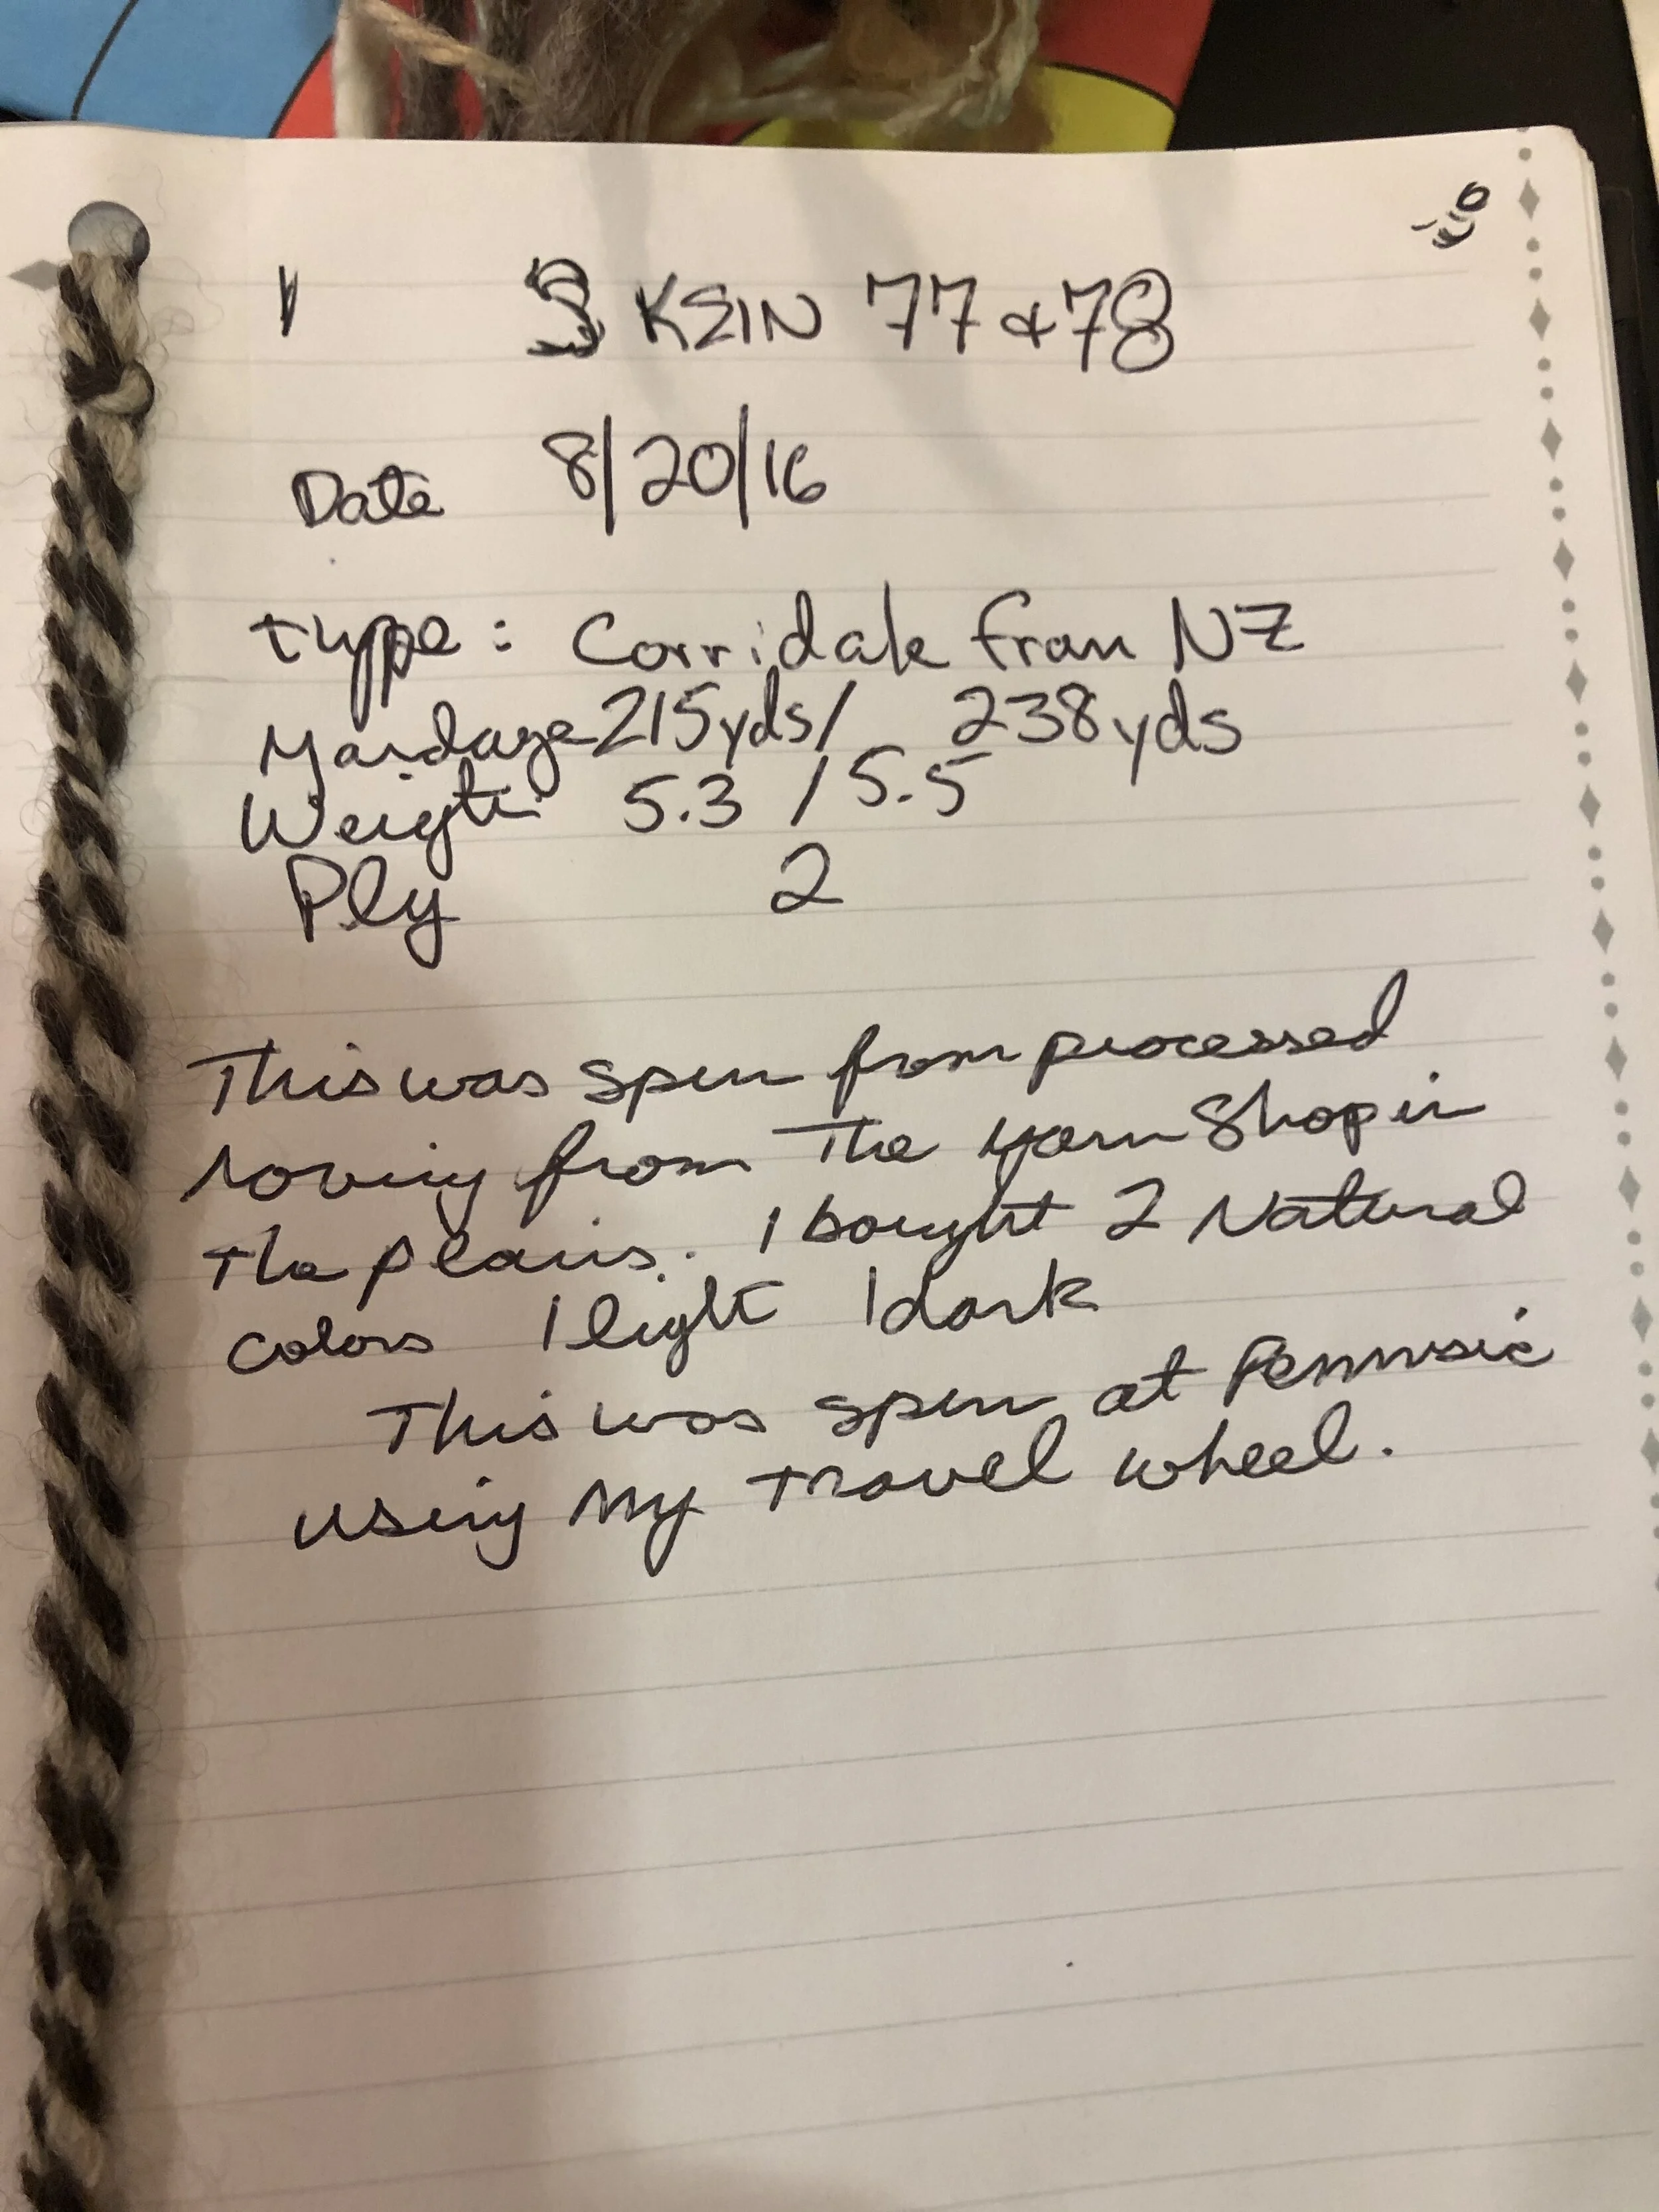 SKEIN 77 & 78
Date 8/20/16
Type: Corridale from NZ
Yardage 215yds/ 238yds
Weight 5.3 / 5.5
Ply 2
This was spun from processed
roving from The Yarn Shop in
The plains. I bought 2 Natural
colors 1 light 1 dark
This was spun at Pennsic
using My Travel wheel.